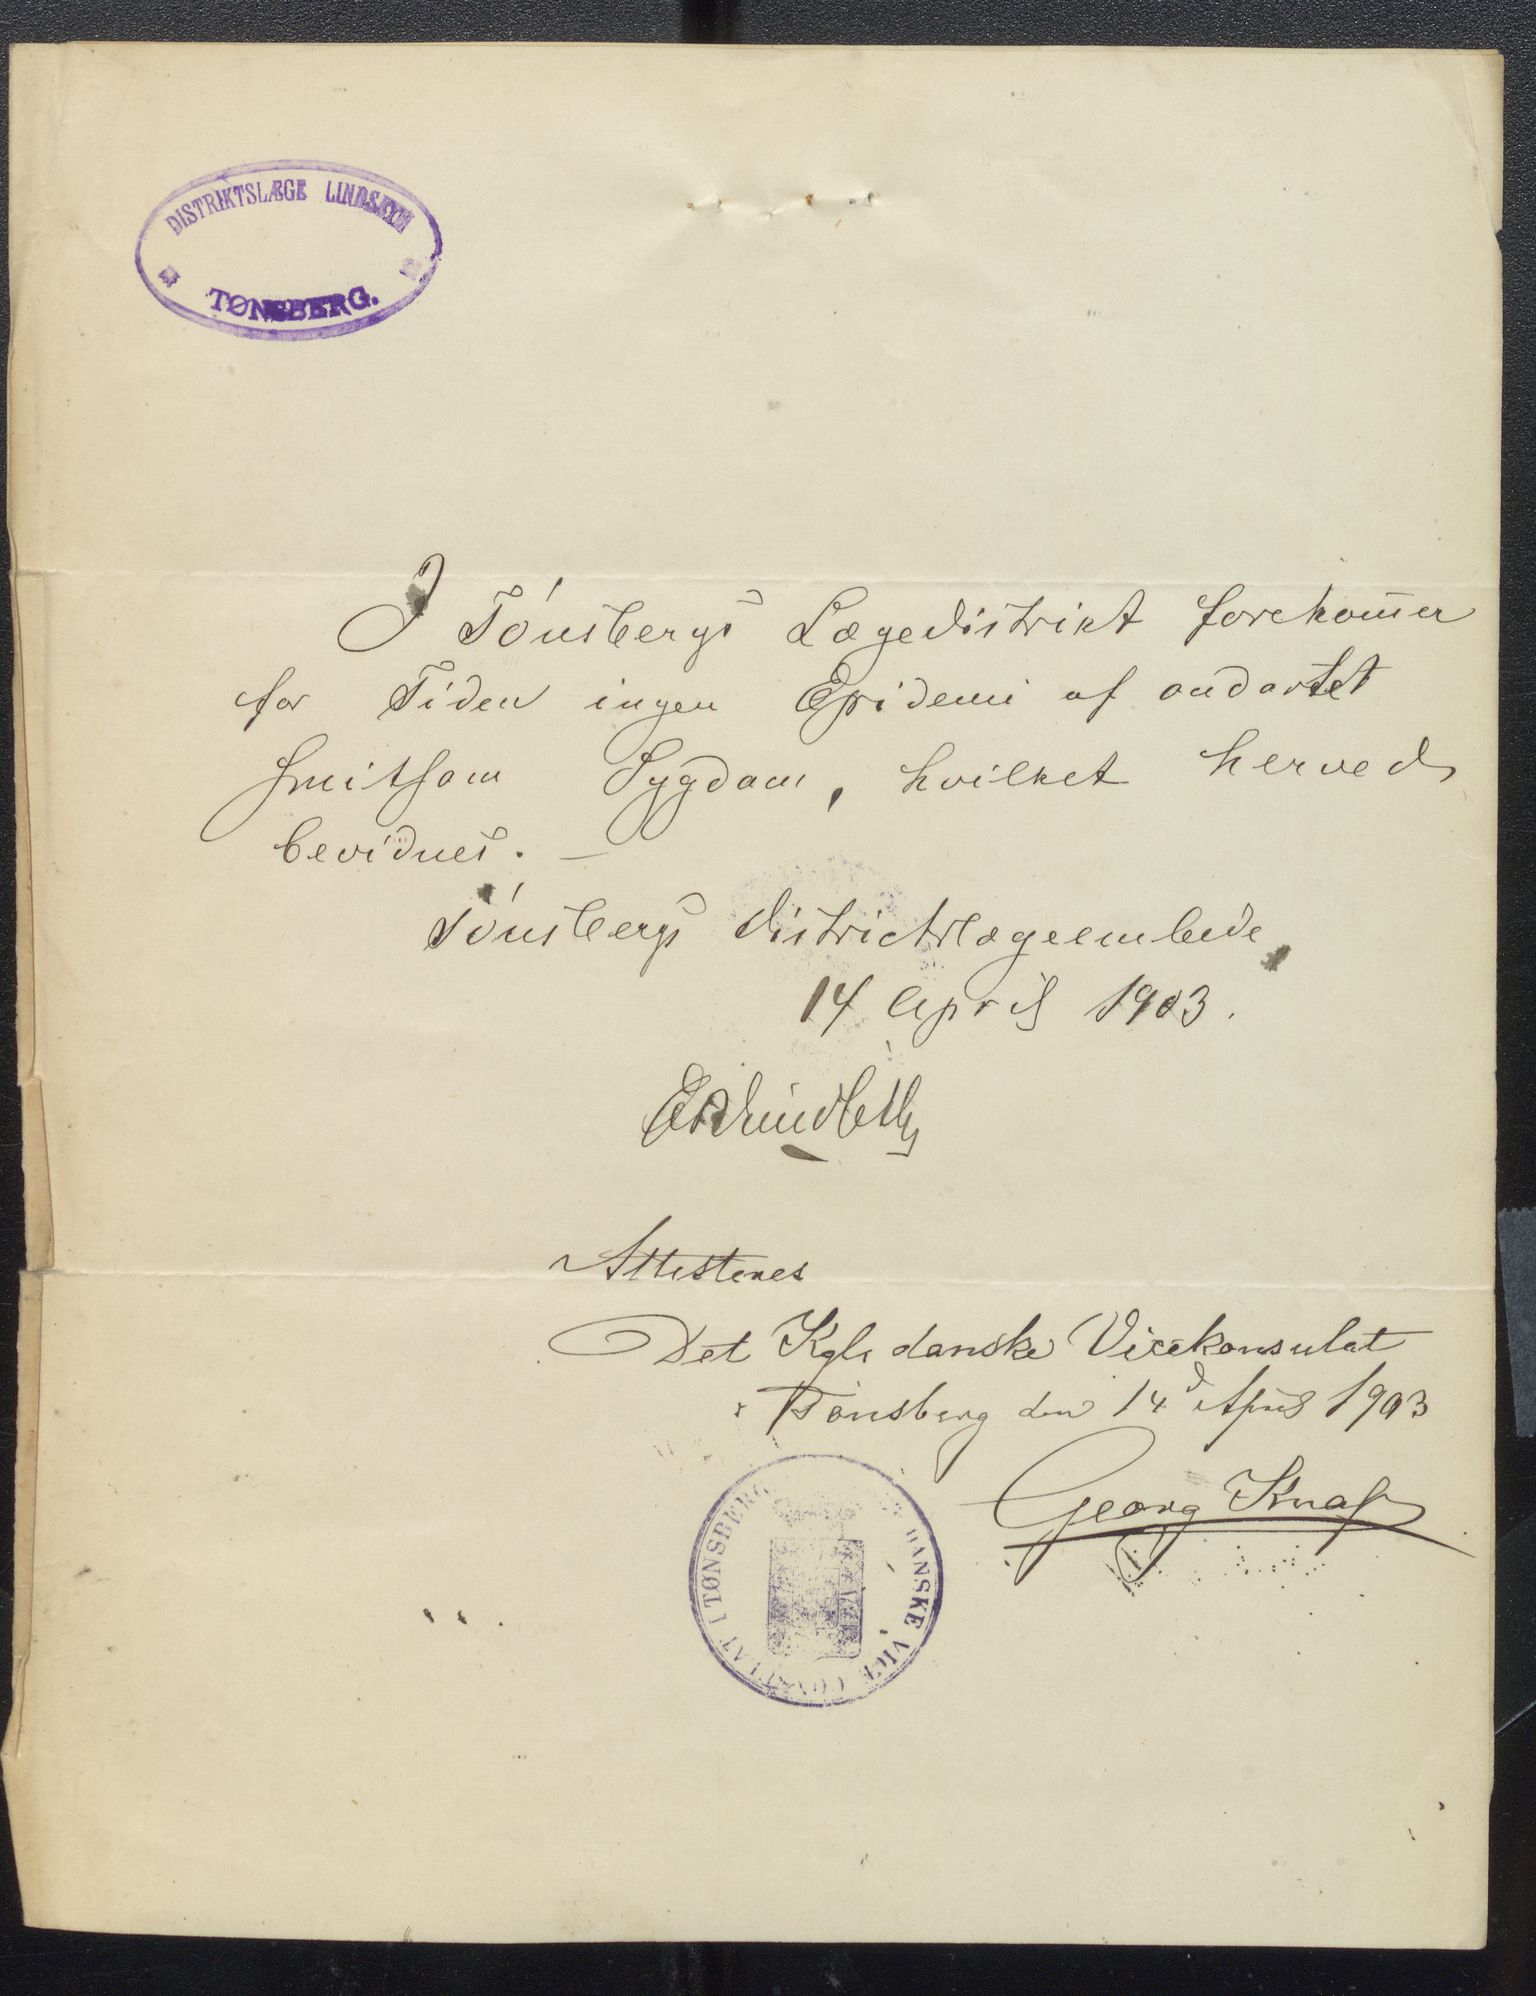 DISTRIKTSLÆGE
TØNSBERG.
I Tónsbergs Lægedistrikt forekom̄er
for Tiden ingen Epidemi af ondartet
smitsom Sygdom, hvilket herved
bevidnes. —
Tónsbergs districtslægeembede
14 April 1903.
Attesteres
Det Kgl. danske Vicekonsulat
Tønsberg den 14d April 1903
Georg Knap
DANSKE VICE CONSULAT I TØNSBERG